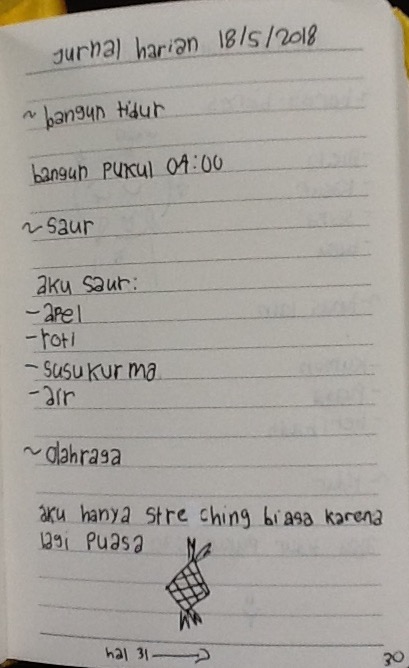 Jurnal harian 18/5/2018
~ bangun tidur
bangun pukul 04:00
~ saur
aku saur:
- apel
- roti
- susu kurma
- air
~ olahraga
aku hanya stre ching biasa karena
lagi puasa
hal 31
30